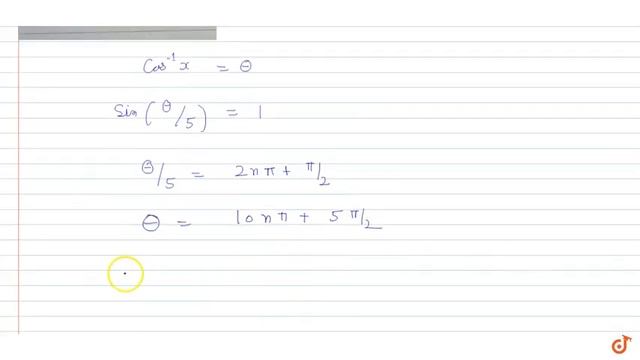 Cos⁻¹x = θ
Sin(θ/5) = 1
θ/5 = 2nπ + π/2
θ = 10nπ + 5π/2